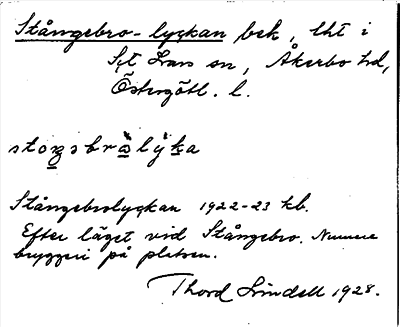 Stångebro-lyckan bek, lht i
S:t Lars sn, Åkerbo hd,
Östergötl. l.
Stångebrolyckan 1922-23 kb.
Efter läget vid Stångebro. Numera
bryggeri på platsen.
Thord Lindell 1928.